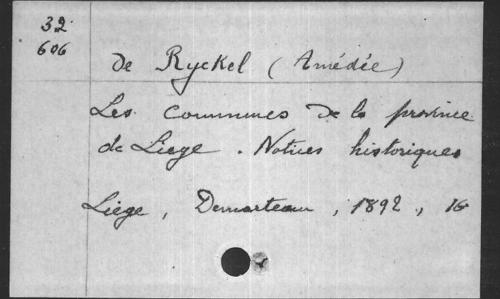 32
606
de Ryckel (Amédée)
Les communes de la province
de Liège. Notices historiques
Liège, Demarteau, 1892, 16